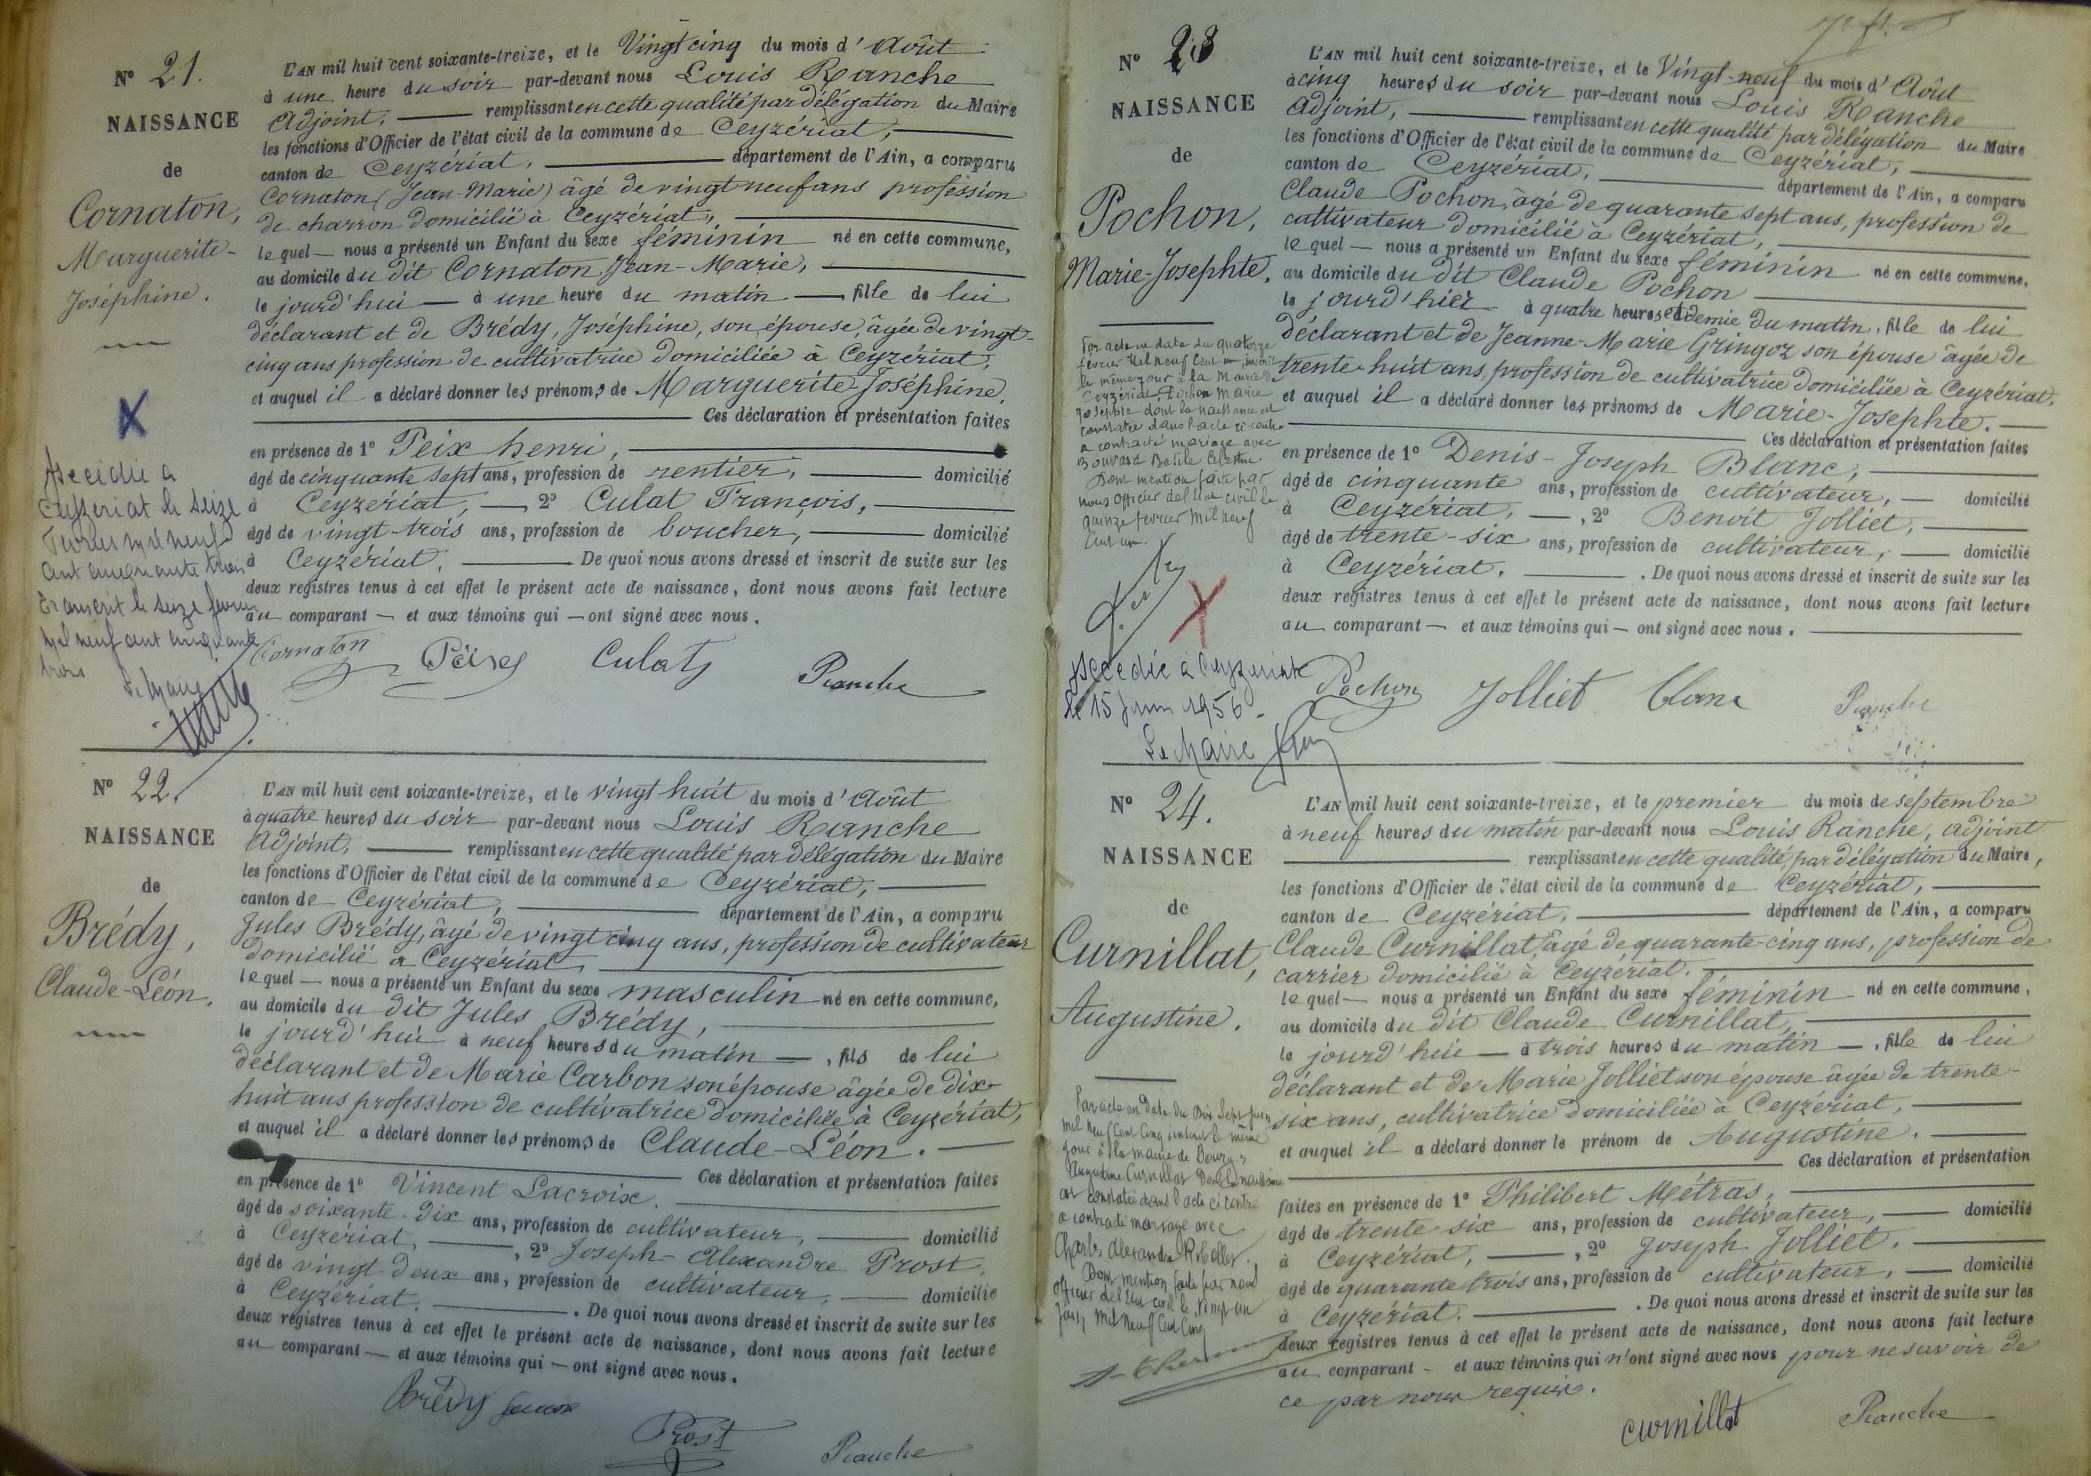 N° 21.
NAISSANCE
de
Cornaton,
Marguerite-
Joséphine.
L'AN mil huit cent soixante-treize, et le Vingt cinq du mois d'Août
à une heure du soir par-devant nous Louis Ranche
Adjoint, remplissant en cette qualité par délégation du Maire
les fonctions d'Officier de l'état civil de la commune de Ceyzériat,
canton de Ceyzériat, département de l'Ain, a comparu
Cornaton (Jean-Marie) âgé de vingt neuf ans profession
de charron domicilié à Ceyzériat,
lequel nous a présenté un Enfant du sexe féminin né en cette commune,
au domicile du dit Cornaton Jean-Marie,
le jourd'hui à une heure du matin, fille de lui
déclarant et de Brédy, Joséphine, son épouse, âgée de vingt-
cinq ans profession de cultivatrice domiciliée à Ceyzériat,
et auquel il a déclaré donner les prénoms de Marguerite Joséphine.
Ces déclaration et présentation faites
en présence de 1° Peix henri,
âgé de cinquante sept ans, profession de rentier, domicilié
à Ceyzériat, 2° Culat François,
âgé de vingt-trois ans, profession de boucher, domicilié
à Ceyzériat. De quoi nous avons dressé et inscrit de suite sur les
deux registres tenus à cet effet le présent acte de naissance, dont nous avons fait lecture
au comparant et aux témoins qui ont signé avec nous.
Cornaton Culat Ranche
X
Décédée a
Ceyzeriat le seize
Fevrier mil neuf
cent cinquante trois
Transcrit le seize fevrier
mil neuf cent cinquante
trois
Le Maire
N° 22.
NAISSANCE
de
Brédy,
Claude-Léon.
L'AN mil huit cent soixante-treize, et le vingt huit du mois d'Août
à quatre heures du soir par-devant nous Louis Ranche
Adjoint, remplissant en cette qualité par délégation du Maire
les fonctions d'Officier de l'état civil de la commune de Ceyzériat,
canton de Ceyzériat, département de l'Ain, a comparu
Jules Brédy, âgé de vingt cinq ans, profession de cultivateur
domicilié à Ceyzériat,
lequel nous a présenté un Enfant du sexe masculin né en cette commune,
au domicile du dit Jules Brédy,
le jourd'hui à neuf heures du matin, fils de lui
déclarant et de Marie Carbon son épouse âgée de dix-
huit ans profession de cultivatrice domiciliée à Ceyzériat,
et auquel il a déclaré donner les prénoms de Claude-Léon.
Ces déclaration et présentation faites
en présence de 1° Vincent Lacroix
âgé de soixante-dix ans, profession de cultivateur, domicilié
à Ceyzériat, 2° Joseph-Alexandre Prost,
âgé de vingt-deux ans, profession de cultivateur, domicilié
à Ceyzériat. De quoi nous avons dressé et inscrit de suite sur les
deux registres tenus à cet effet le présent acte de naissance, dont nous avons fait lecture
au comparant et aux témoins qui ont signé avec nous.
Brédy
Prost Ranche
N° 23
NAISSANCE
de
Pochon,
Marie-Josephte.
L'AN mil huit cent soixante-treize, et le Vingt-neuf du mois d'Août
à cinq heures du soir par-devant nous Louis Ranche
Adjoint, remplissant en cette qualité par délégation du Maire
les fonctions d'Officier de l'état civil de la commune de Ceyzériat,
canton de Ceyzériat, département de l'Ain, a comparu
Claude Pochon, âgé de quarante sept ans, profession de
cultivateur domicilié à Ceyzériat,
lequel nous a présenté un Enfant du sexe féminin né en cette commune,
au domicile du dit Claude Pochon
le jourd'hier à quatre heures et demie du matin, fille de lui
déclarant et de Jeanne-Marie Gringoz son épouse âgée de
trente-huit ans, profession de cultivatrice domiciliée à Ceyzériat,
et auquel il a déclaré donner les prénoms de Marie-Josephte.
Ces déclaration et présentation faites
en présence de 1° Denis-Joseph Blanc,
âgé de cinquante ans, profession de cultivateur, domicilié
à Ceyzériat, 2° Benoît Jolliet,
âgé de trente-six ans, profession de cultivateur, domicilié
à Ceyzériat. De quoi nous avons dressé et inscrit de suite sur les
deux registres tenus à cet effet le présent acte de naissance, dont nous avons fait lecture
au comparant et aux témoins qui ont signé avec nous.
Pochon Jolliet Blanc Ranche
Par acte en date du quatorze
février mil neuf cent un, inscrit
le même jour à la Mairie de
Ceyzériat, Pochon Marie
Josephte dont la naissance est
constatée dans l'acte ci contre
a contracté mariage avec
Bouvard
Dont mention faite par
nous Officier de l'état civil le
quinze février mil neuf
cent un.
X
Décédée à Ceyzeriat
le 15 Juin 1956
Le Maire
N° 24.
NAISSANCE
de
Curnillat,
Augustine.
L'AN mil huit cent soixante-treize, et le premier du mois de septembre
à neuf heures du matin par-devant nous Louis Ranche, adjoint
remplissant en cette qualité par délégation du Maire,
les fonctions d'Officier de l'état civil de la commune de Ceyzériat,
canton de Ceyzériat, département de l'Ain, a comparu
Claude Curnillat, âgé de quarante-cinq ans, profession de
carrier domicilié à Ceyzériat.
lequel nous a présenté un Enfant du sexe féminin né en cette commune,
au domicile du dit Claude Curnillat,
le jourd'hui à trois heures du matin, fille de lui
déclarant et de Marie Jolliet son épouse âgée de trente-
six ans, cultivatrice domiciliée à Ceyzériat,
et auquel il a déclaré donner le prénom de Augustine.
Ces déclaration et présentation
faites en présence de 1° Philibert Métras,
âgé de trente-six ans, profession de cultivateur, domicilié
à Ceyzériat, 2° Joseph Jolliet,
âgé de quarante trois ans, profession de cultivateur, domicilié
à Ceyzériat. De quoi nous avons dressé et inscrit de suite sur les
deux registres tenus à cet effet le présent acte de naissance, dont nous avons fait lecture
au comparant et aux témoins qui n'ont signé avec nous pour ne savoir de
ce par nous requis.
Curnillat Ranche
Par acte en date du dix sept juin
mil neuf cent cinq inscrit le même
jour à la mairie de Bourg,
Augustine Curnillat dont la naissance
est constatée dans l'acte ci contre
a contracté mariage avec
Charles Alexandre
Dont mention faite par nous
officier de l'état civil le vingt un
juin mil neuf cent cinq